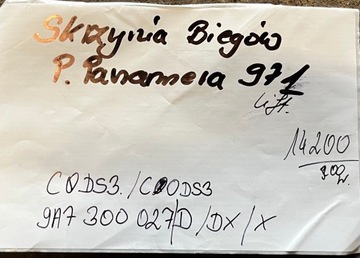 Skrzynia Biegów
P. Panamera 971
Lift.
14200
300zł.
C0DS3./C00DS3
9A7 300 027/D/DX/X